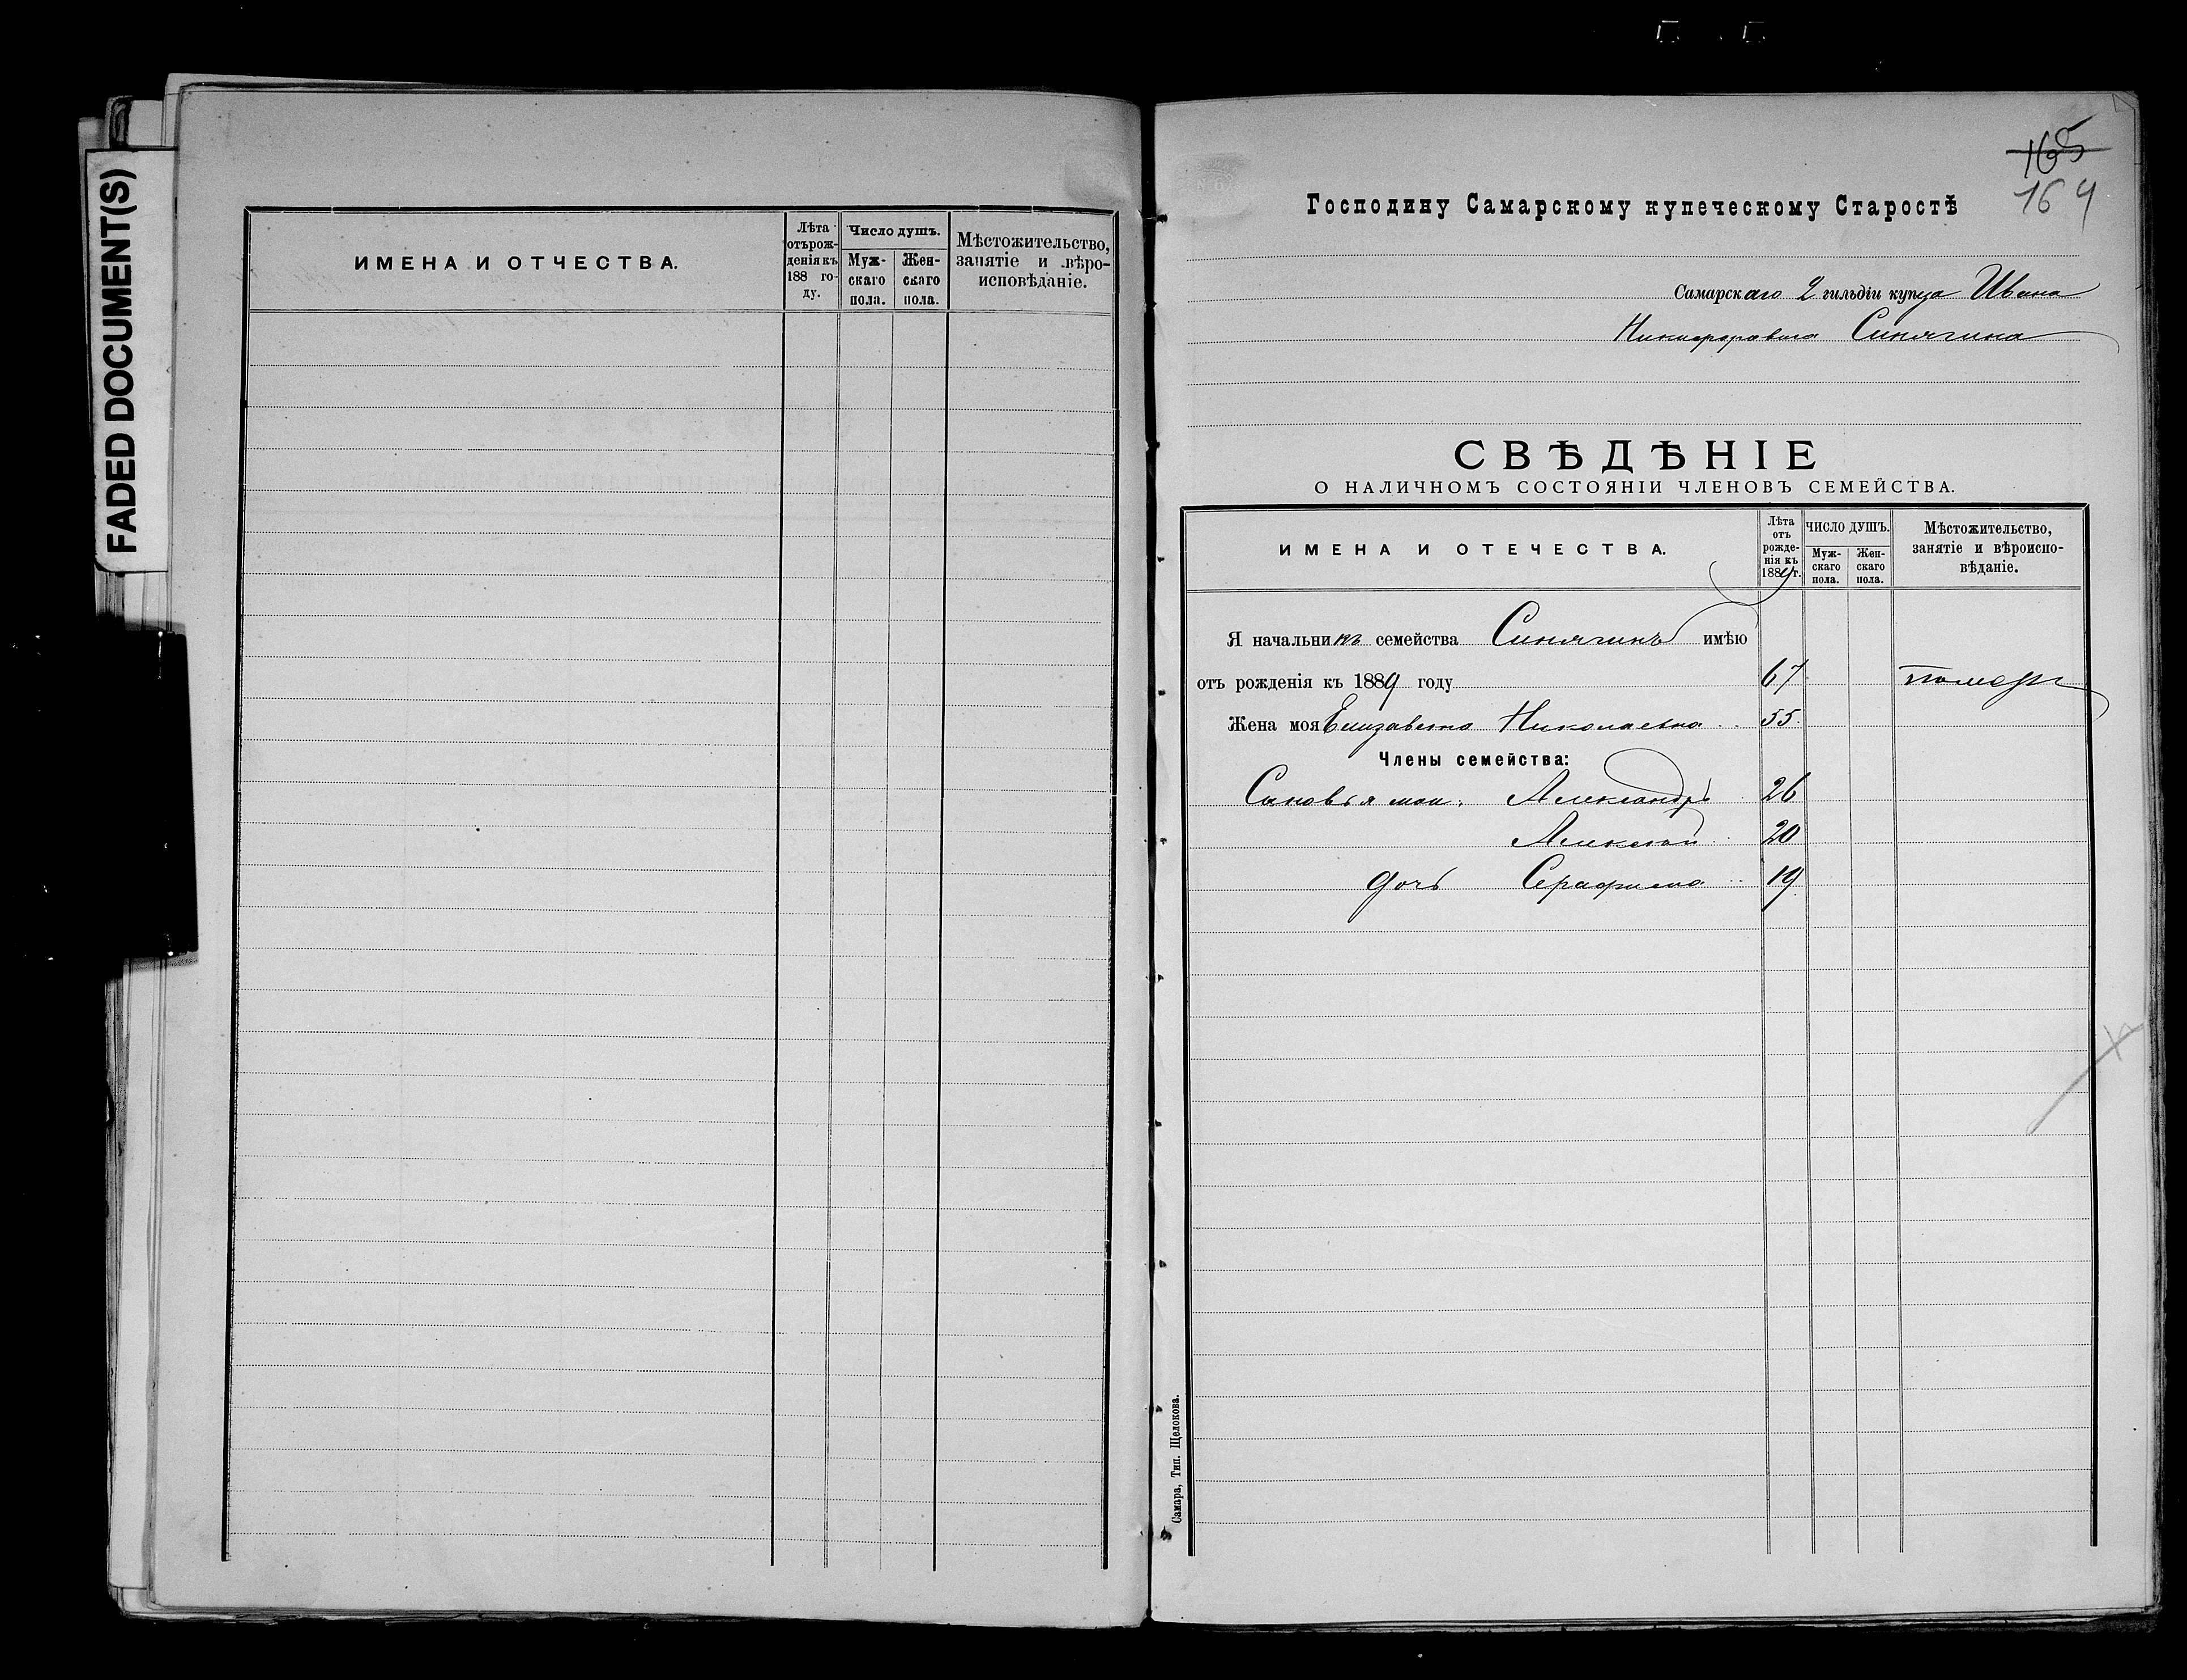 FADED DOCUMENT(S)
ИМЕНА И ОТЧЕСТВА.
Лѣта отърож-денія къ 188 го-ду.
Число душъ.
Муж-скаго пола.
Жен-скаго пола.
Мѣстожительство, занятіе и вѣро-исповѣданіе.
165
164
Господину Самарскому купеческому Старостѣ
Самарскаго 2 гильдіи купца Ивана
Никифоровича Синягина
СВѢДѢНІЕ
О НАЛИЧНОМЪ СОСТОЯНІИ ЧЛЕНОВЪ СЕМЕЙСТВА.
ИМЕНА И ОТЕЧЕСТВА.
Лѣта отъ рожде-нія къ 1889 г.
ЧИСЛО ДУШЪ.
Муж-скаго пола.
Жен-скаго пола.
Мѣстожительство, занятіе и вѣроиспо-вѣданіе.
Я начальникъ семейства Синягинъ имѣю
отъ рожденія къ 1889 году 67 померъ
Жена моя Елизавета Николаевна 55.
Члены семейства:
Сыновья мои: Александръ 26
Алексѣй 20
дочь Серафима 19
Самара, Тип. Щелокова.